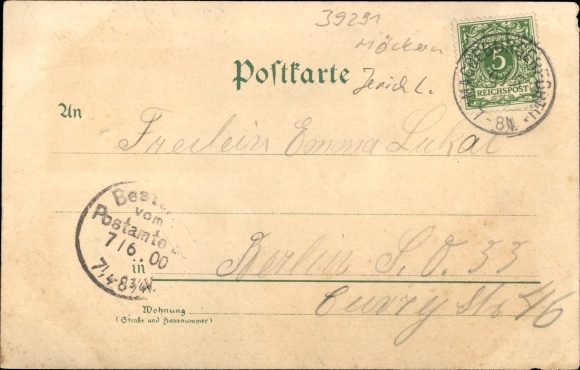 39291
Möckern
Jerich L.
Postkarte
5
REICHSPOST
7-8N.
An
Freilein Emma Lukat
Best
vom
Postamte
7/6.00
7¼-8¾N.
in
Berlin S.O. 33
Curry Str 46
Wohnung
(Straße und Hausnummer)